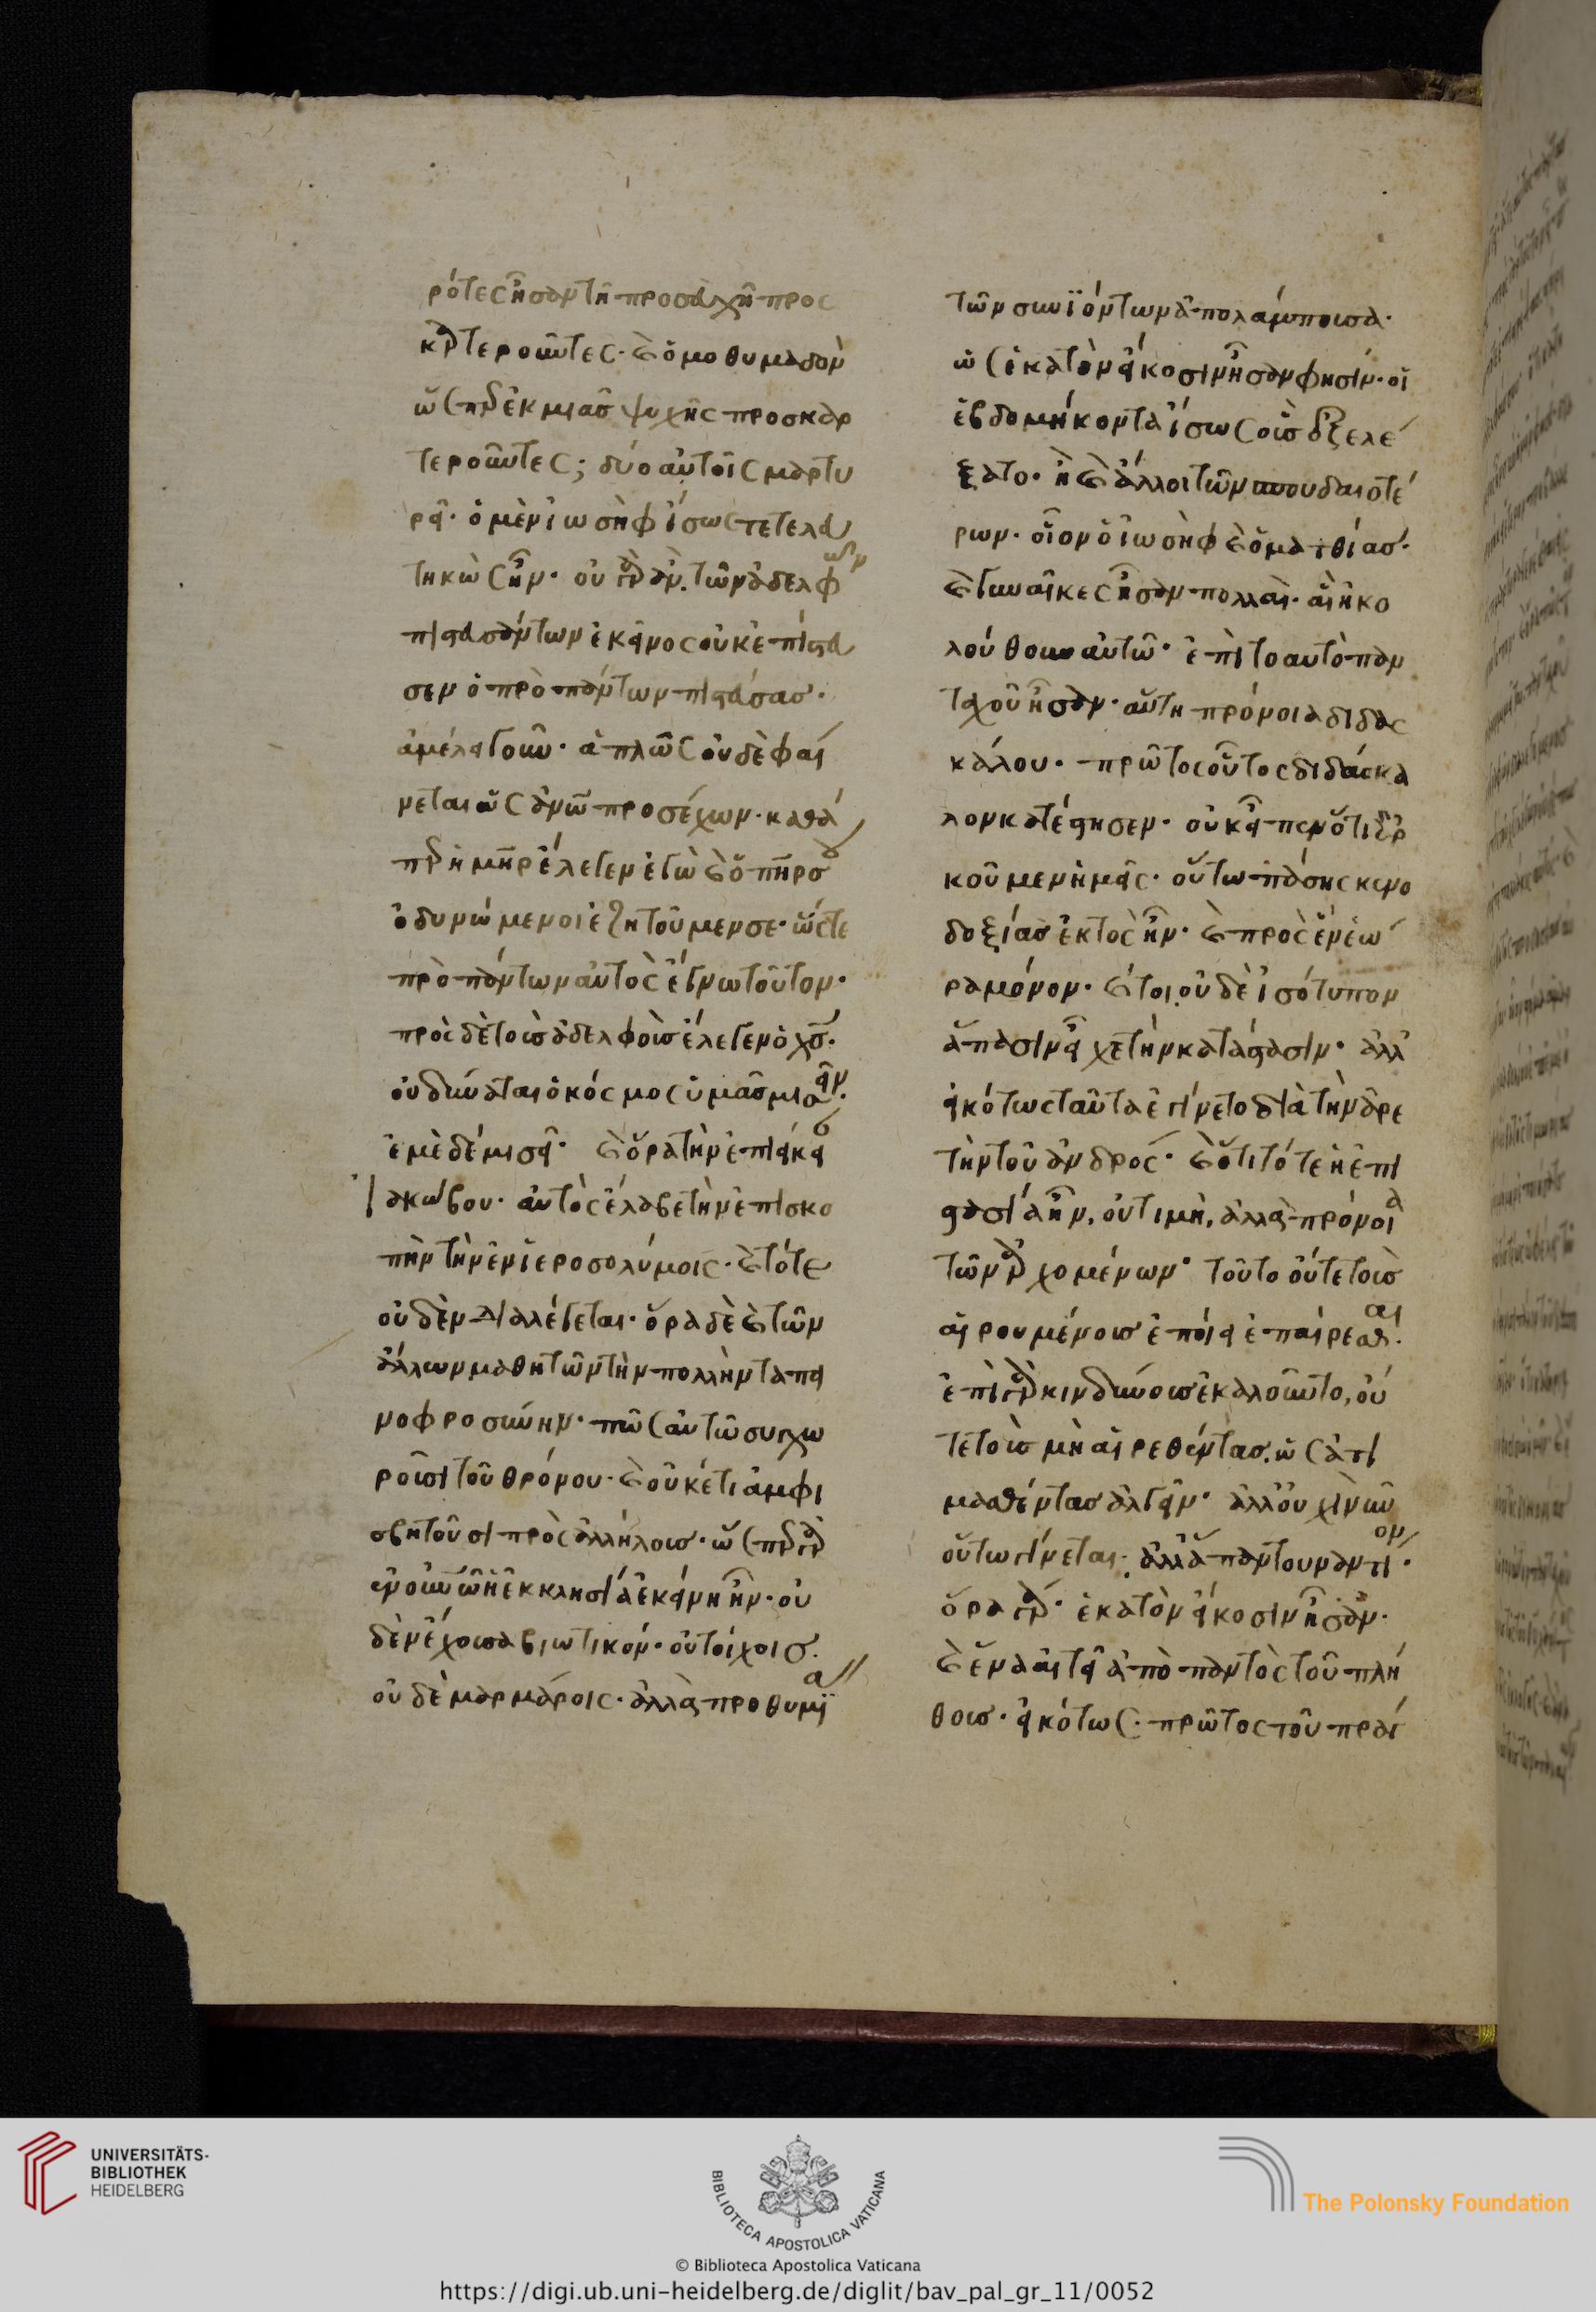 ρότες ἦσαν τῆ προσευχῆ προς
καρτεροῦντες· καὶ ὁμοθυμαδὸν
ὥσπερ ἐκ μιᾶς ψυχῆς προσκαρ
τεροῦντες; δύο αὐτοῖς μαρτυ
ρεῖ· ὁ μὲν ἰωσὴφ ἴσως τετελευ
τηκὼς ἦν· οὐ γὰρ ἂν. τῶν ἀδελφῶν
πιστευσάντων ἐκεῖνος οὐκ ἐπίστευ
σεν ὁ πρὸ πάντων πιστεύσας·
ἀμέλει γοῦν· ἁπλῶς οὐδὲ φαί
νεται ὡς ἀνω προσέχων· καθά
περ ἡ μηρ ἔλεγεν ἐγὼ καὶ ὁ πηρ σου
ὀδυνώμενοι ἐζητοῦμεν σε· ὥστε
πρὸ πάντων αὐτὸς ἔγνω τοῦτον·
πρὸς δὲ τοὺς ἀδελφοὺς ἔλεγεν ὁ χς·
οὐ δύναται ὁ κόσμος ὑμᾶς μισεῖν·
ἐμὲ δὲ μισεῖ· καὶ ὅρα τὴν ἐπιείκει
ἰακώβου· αὐτὸς ἔλαβε τὴν ἐπισκο
πὴν τὴν ἐν ἱεροσολύμοις· καὶ τότε
οὐδὲν διαλέγεται· ὅρα δὲ καὶ τῶν
ἄλλων μαθητῶν τὴν πολλὴν ταπει
νοφροσύνην· πῶς αὐτῶ συγχω
ροῦσι τοῦ θρόνου· καὶ οὐκέτι ἀμφι
σβητοῦσι πρὸς ἀλλήλους· ὥσπερ γὰρ
ἐν οὐνῶ ἡ ἐκκλησία ἐκείνη ἦν· οὐ
δὲν ἔχουσα βιωτικόν· οὐ τοίχοις·
οὐδὲ μαρμάροις· ἀλλὰ προθυμία
τῶν συνϊόντων ἀπολάμπουσα·
ὡς ἑκατὸν εἴκοσιν ἦσαν φησίν· οἱ
ἑβδομήκοντα ἴσως οὓς ἐξελέ
ξατο· ἢ καὶ ἄλλοι τῶν σπουδαιοτέ
ρων· οἷον ὁ ἰωσὴφ καὶ ὁ ματθίας·
καὶ γυναῖκες ἦσαν πολλαὶ· αἳ ἠκο
λούθουν αὐτῶ· ἐπὶ τοαυτὸ παν
ταχοῦ ἦσαν· αὕτη πρόνοια διδας
κάλου· πρῶτος οὗτος διδάσκα
λον κατέστησεν· οὐκ εἶπεν ὅτι ἀρ
κοῦμεν ἡμεῖς· οὕτω πάσης κενο
δοξίας ἐκτὸς ἦν· καὶ πρὸς ἓν ἑώ
ρα μόνον· καίτοι οὐδὲ ἰσότυπον
ἅπασιν εἶχε τὴν κατάστασιν· ἀλλ'
εἰκότως ταῦτα ἐγίνετο διὰ τὴν ἀρε
τὴν τοῦ ἀνδρός· καὶ ὅτι τότε ἡ ἐπι
στασία ἦν, οὐ τιμὴ, ἀλλὰ πρόνοια
τῶν ἀρχομένων· τοῦτο οὔτε τοὺς
αἱρουμένους ἐποίει ἐπαίρεσθαι·
ἐπὶ γὰρ κινδύνους ἐκαλοῦντο, οὔ
τε τοὺς μὴ αἱρεθέντας, ὡς ἀτι
μασθέντας ἀλγεῖν· ἀλλ' οὐχὶ νῦν
οὕτω γίνεται· ἀλλ' ἅπαν τουναντίον·
ὅρα γάρ· ἑκατὸν εἴκοσιν ἦσαν·
καὶ ἕνα αἰτεῖ ἀπὸ παντὸς τοῦ πλή
θους· εἰκότως· πρῶτος τοῦ πρά
UNIVERSITÄTS-
BIBLIOTHEK
HEIDELBERG
BIBLIOTECA APOSTOLICA VATICANA
© Biblioteca Apostolica Vaticana
The Polonsky Foundation
https://digi.ub.uni-heidelberg.de/diglit/bav_pal_gr_11/0052